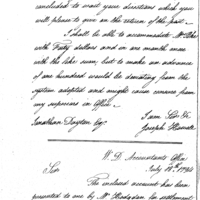 concluded to wait your directions which you
will please to give on the return of the post.
I shall be able to accommodate Mr
with Fifty dollars and in one month more
with the like sum, but to make an advance
of one hundred would be deviating from the
system adopted and might cause censure from
my superiors in Office.
I am Sir &c.
Jonathan Dayton Esq.
Joseph Howell
W. D. Accountants Office
July 18th, 1792
Sir
The enclosed account has been
presented to me by Mr Hodgdon for settlement